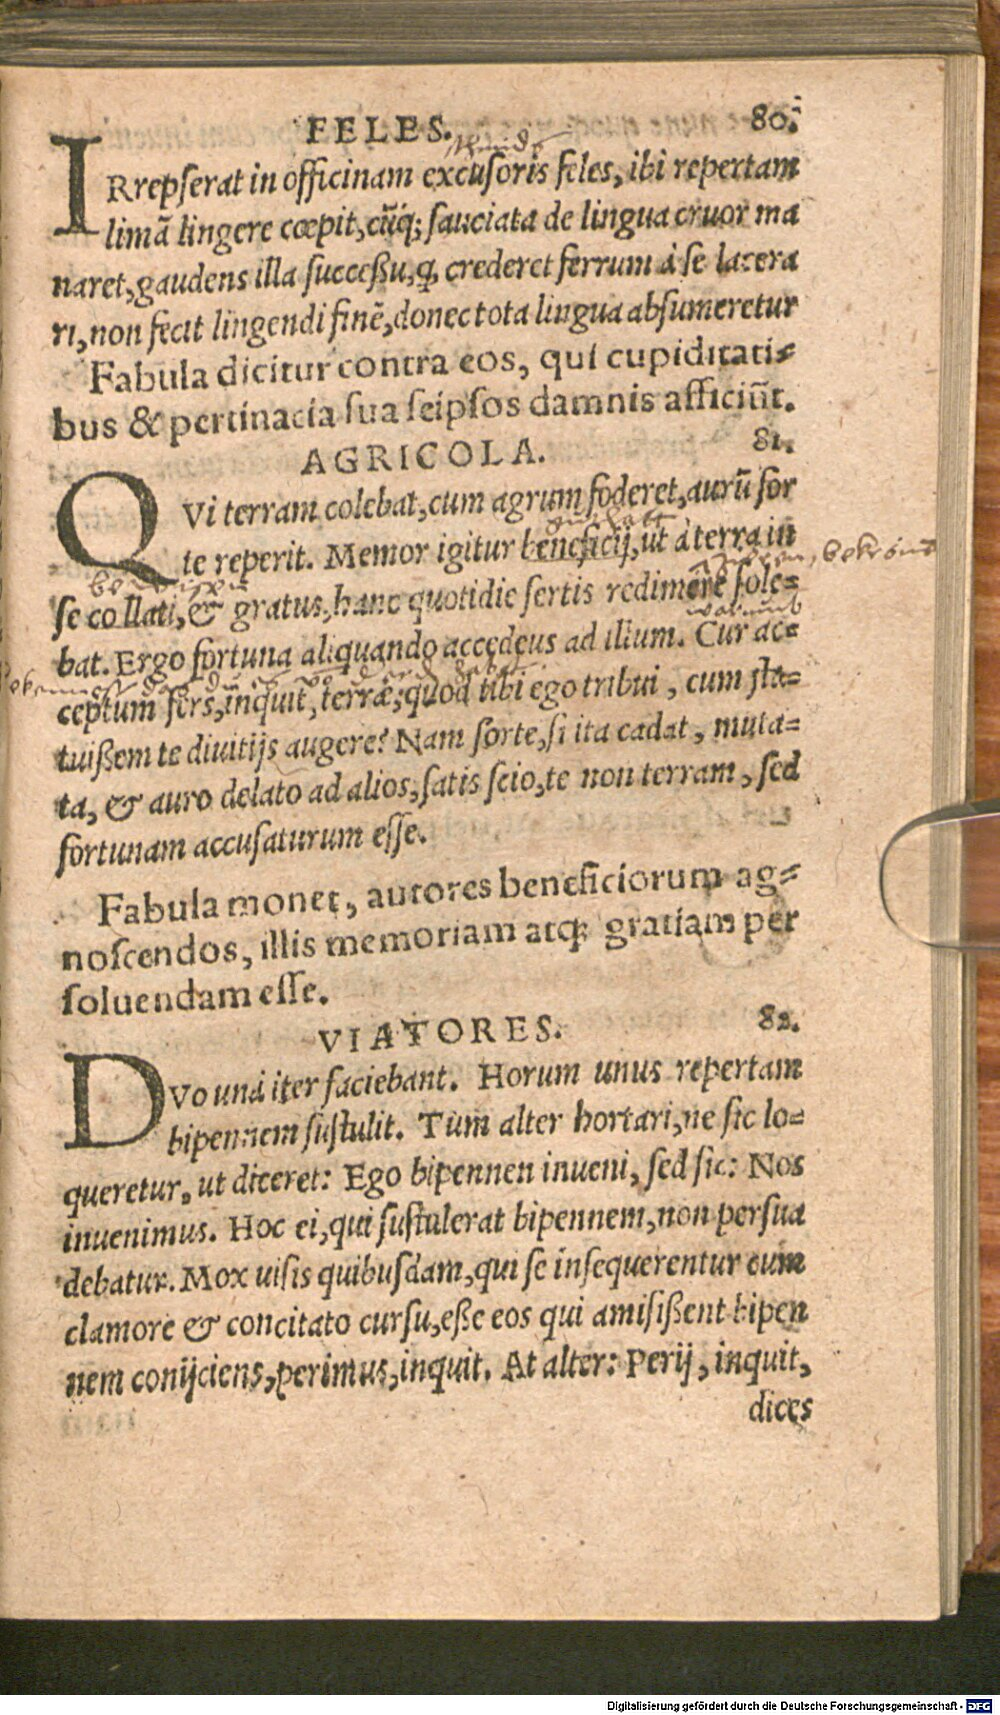 FELES. 80.
IRrepserat in officinam excusoris feles, ibi repertam
limā lingere cœpit, cūq; sauciata de lingua cruor ma
naret, gaudens illa successu, q crederet ferrum à se lacera
ri, non fecit lingendi finē, donec tota lingua absumeretur
Fabula dicitur contra eos, qui cupiditati=
bus & pertinacia sua seipsos damnis afficiūt.
AGRICOLA. 81.
QVi terram colebat, cum agrum foderet, aurū for
te reperit. Memor igitur beneficij, ut à terra in
se collati, & gratus, hanc quotidie sertis redimere sole=
bat. Ergo fortuna aliquando accedẽs ad illum. Cur ac=
ceptum fers, inquit, terræ, quod tibi ego tribui, cum sta=
tuissem te diuitijs augere? Nam sorte, si ita cadat, muta=
ta, & auro delato ad alios, satis scio, te non terram, sed
fortunam accusaturum esse.
Fabula monet, autores beneficiorum ag=
noscendos, illis memoriam atq; gratiam per
soluendam esse.
VIATORES. 82.
DVo unà iter faciebant. Horum unus repertam
bipennem sustulit. Tum alter hortari, ne sic lo=
queretur, ut diceret: Ego bipennen inueni, sed sic: Nos
inuenimus. Hoc ei, qui sustulerat bipennem, non persua
debatur. Mox uisis quibusdam, qui se insequerentur cum
clamore & concitato cursu, esse eos qui amisissent bipen
nem conijciens, perimus, inquit. At alter: Perij, inquit,
dices
Digitalisierung gefördert durch die Deutsche Forschungsgemeinschaft - DFG